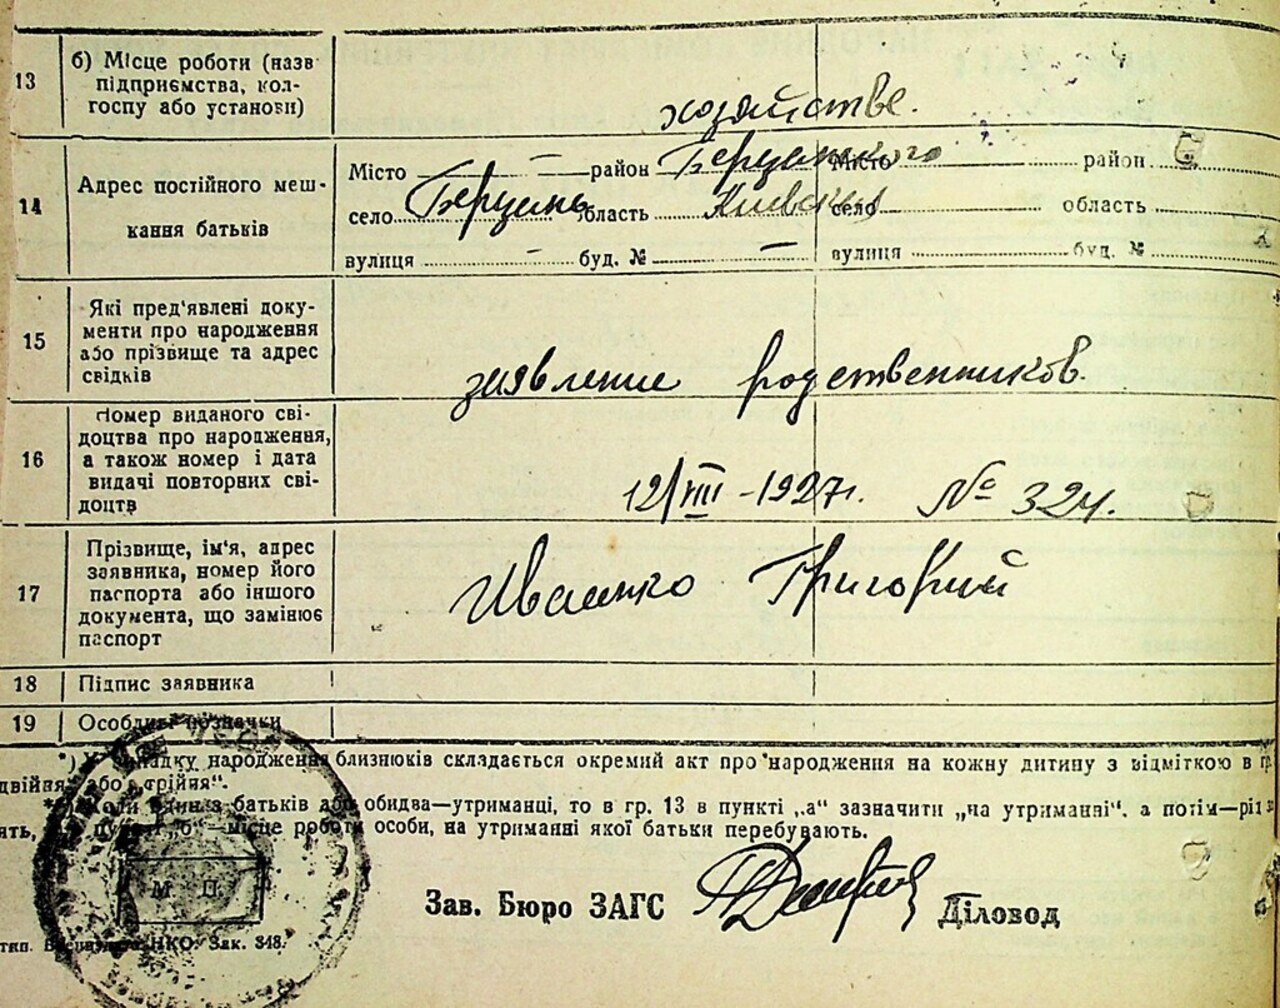 13
б) Місце роботи (назв
підприємства, кол-
госпу або установи)
хозяйстве.
14
Адрес постійного меш-
кання батьків
Місто — район Місто район
село область Киевская село область
вулиця - буд. № — вулиця буд. №
15
Які пред'явлені доку-
менти про народження
або прізвище та адрес
свідків
заявление родственников.
16
Номер виданого сві-
доцтва про народження,
а також номер і дата
видачі повторних сві-
доцтв
12/VIII -1927г. № 324.
17
Прізвище, ім'я, адрес
заявника, номер його
паспорта або іншого
документа, що замінює
паспорт
Иваненко Григорий
18 Підпис заявника
19 Особливі позначки
*) У випадку народження близнюків складається окремий акт про народження на кожну дитину з відміткою в гр.
„двійня“ або „трійня“.
Коли один з батьків або обидва—утриманці, то в гр. 13 в пункті „а“ зазначити „на утриманні“, а потім—рід за
пункті „б“—місце роботи особи, на утриманні якої батьки перебувають.
М П.
Зав. Бюро ЗАГС Діловод
тип. НКО. Зак. 348.